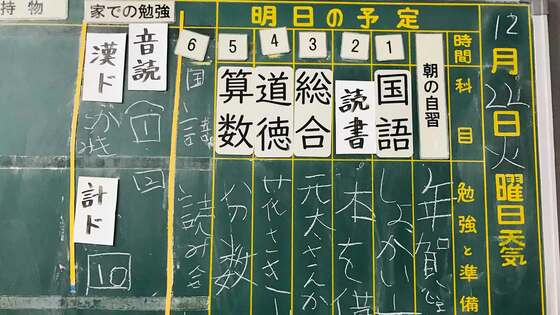 明日の予定
12月22日火曜日天気
時間
科目
勉強と準備
朝の自習
年賀
1
国語
しょうかい
2
読書
本を借
3
総合
元太さんか
4
道徳
花さき
5
算数
分数
6
国語
読み会
家での勉強
音読
漢ド
計ド
10
持物